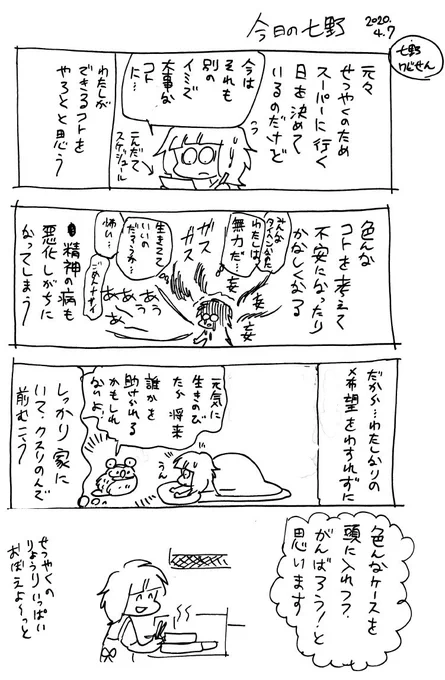 今日の七野
2020.
4.7
七野
ワビせん
元々
せつやくのため
スーパーに行く
日を決めて
いるのだけど
今は
それも
別の
イミで
大事な
コト
に…
こんだて
スケジュール
わたしが
できるコトを
やろうと思う
色んな
コトを考えて
不安になったり
かなしくなる
みんな
タイヘンなのに
わたしは
無力だ…
ガス
ガス
生きてて
いいの
だろうか…
怖い…
ごめんナサイ
あぅ
あぅ
あぁ
あー
精神の病も
悪化しがちに
なってしまう
だから…わたしなりの
希望をわすれずに
元気に
生きのび
たら将来
誰かを
助けれる
かもしれ
ないよ!
うん
しっかり家に
いて、クスリのんで
前むこう
色んなケースを
頭に入れつつ
がんばろう!と
思います
せつやくの
りょうりいっぱい
おぼえよ〜っと